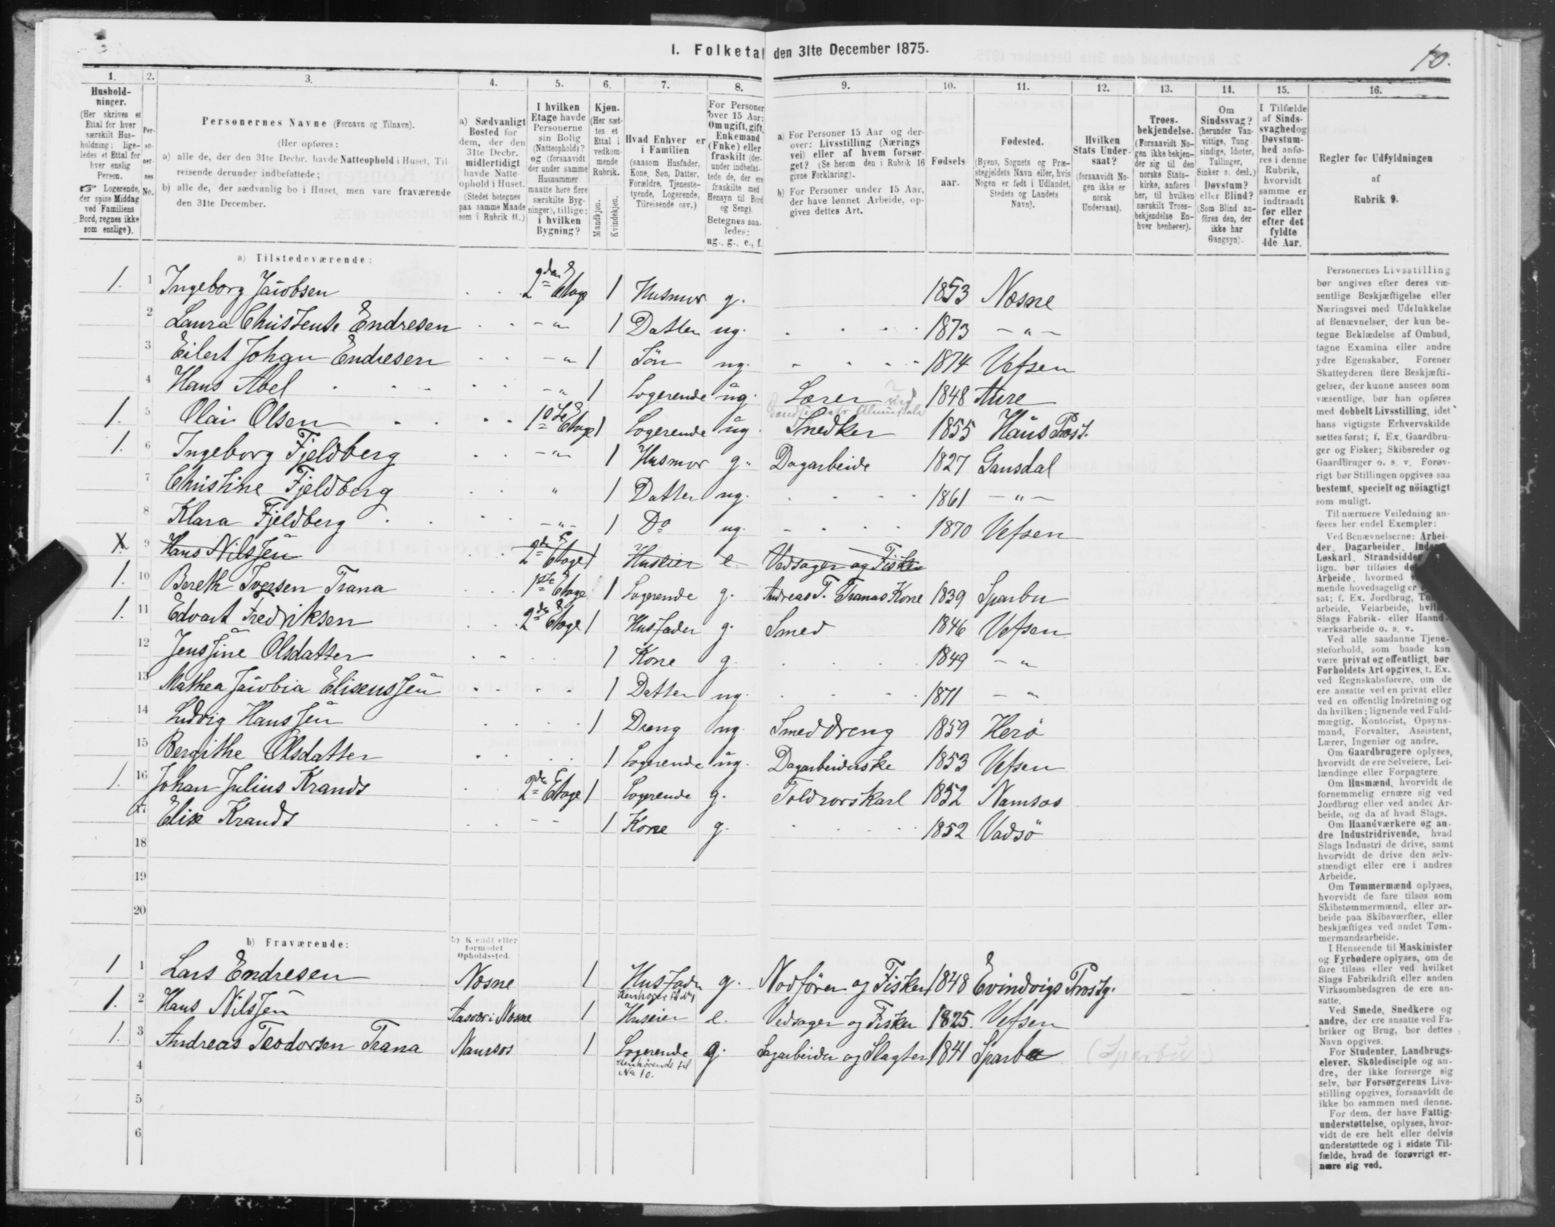 10.
I. Folketal den 31te December 1875.
1. 2. 3. 4. 5. 6. 7. 8. 9. 10. 11. 12. 13. 14. 15. 16.
Hushold-
ninger.
(Her skrives et
Ettal for hver
særskilt Hus-
holdning; lige-
ledes et Ettal for
hver enslig
Person.
☞ Logerende,
der spise Middag
ved Familiens
Bord, regnes ikke
som enslige).
Per-
so-
ner-
nes
No.
Personernes Navne (Fornavn og Tilnavn).
(Her opføres:
a) alle de, der den 31te Decbr. havde Natteophold i Huset, Til-
reisende derunder indbefattede;
b) alle de, der sædvanlig bo i Huset, men vare fraværende
den 31te December.
a) Sædvanligt
Bosted for
dem, der den
31te Decbr.
midlertidigt
havde Natte-
ophold i Huset.
(Stedet betegnes
paa samme Maade
som i Rubrik 11.)
I hvilken
Etage havde
Personerne
sin Bolig
(Natteophold)?
og (forsaavidt
der under samme
Husnummer
maatte høre flere
særskilte Byg-
ninger), tillige:
i hvilken
Bygning?
Kjøn.
(Her sæt-
tes et
Ettal i
vedkom-
mende
Rubrik.
Mandkjøn.
Kvindekjøn.
Hvad Enhver er
i Familien
(saasom Husfader,
Kone, Søn, Datter,
Forældre, Tjeneste-
tyende, Logerende,
Tilreisende osv.)
For Personer
over 15 Aar:
Om ugift, gift,
Enkemand
(Enke) eller
fraskilt (der-
under indbefat-
tede de, der ere
fraskilte med
Hensyn til Bord
og Seng).
Betegnes saa-
ledes:
ug., g., e., f.
a) For Personer 15 Aar og der-
over: Livsstilling (Nærings-
vei) eller af hvem forsør-
get? (Se herom den i Rubrik 16
givne Forklaring).
b) For Personer under 15 Aar,
der have lønnet Arbeide, op-
gives dettes Art.
Fødsels-
aar.
Fødested.
(Byens, Sognets og Præ-
stegjeldets Navn eller, hvis
Nogen er født i Udlandet,
Stedets og Landets
Navn).
Hvilken
Stats Under-
saat?
(forsaavidt No-
gen ikke er
norsk
Undersaat).
Troes-
bekjendelse.
(Forsaavidt No-
gen ikke bekjen-
der sig til den
norske Stats-
kirke, anføres
her, til hvilken
særskilt Troes-
bekjendelse En-
hver henhører).
Om
Sindssvag?
(herunder Van-
vittige, Tung-
sindige, Idioter,
Tullinger,
Sinker o. desl.)
Døvstum?
eller Blind?
(Som Blind an-
føres den, der
ikke har
Gangsyn).
I Tilfælde
af Sinds-
svaghed og
Døvstum-
hed anfø-
res i denne
Rubrik,
hvorvidt
samme er
indtraadt
før eller
efter det
fyldte
4de Aar.
Regler for Udfyldningen
af
Rubrik 9.
a) Tilstedeværende:
1. 1 Ingeborg Jacobsen 2den Etage 1 Husmor g. 1853 Næsne
2 Laura Christense Endresen - " 1 Datter ug. 1873 - " -
3 Eilert Johan Endresen - " 1 Søn ug. 1874 Vefsen
4 Hans Abel - " 1 Logerende ug. Lærer ved 1848 Aure
1. 5 Olai Olsen 1ste Etage 1 Logerende ug. Snedker 1855 Haus Præst.
1. 6 Ingeborg Fjeldberg - " - 1 Husmor g. Dagarbeide 1827 Gausdal
7 Christine Fjeldberg " 1 Datter ug. 1861 - " -
8 Klara Fjeldberg - " - 1 Do ug. 1870 Vefsen
X 9 Hans Nilssen 2den Etage 1 Huseier e Vedsager og Fisker
1. 10 Bereth Iversen Trana 1ste Etage 1 Logerende g. Andreas T. Tranas Kone 1839 Sparbu
1. 11 Edvart Fredriksen 2den Etage 1 Husfader g. Smed 1846 Vefsen
12 Jenssine Olsdatter 1 Kone g. 1849 - "
13 Mathea Jacobia Elisenssen 1 Datter ug. 1871 - "
14 Ludvig Hanssen 1 Dreng ug. Smeddreng 1859 Herø
15 Bergithe Olsdatter 1 Logerende ug. Dagarbeiderske 1853 Vefsen
1. 16 Johan Julius Krands 2den Etage 1 Logerende g. Toldrorskarl 1852 Namsos
17 Elise Krands - - 1 Kone g. 1852 Vadsö
18
19
20
b) Fraværende:
b) Kendt eller
formodet
Opholdssted.
1 1 Lars Endresen Næsne 1 Husfader g. Nodfører og Fisker 1848 Evindvigs Præstg.
1. 2 Hans Nilssen Aasvær i Næsne 1 Huseier e. Vedsager og Fisker 1825. Vefsen
1. 3 Andreas Teodorsen Trana Namsos 1 Logerende g. Dagarbeider og Slagter 1841 Sparbu (Sparbu)
henhørende til
No 10.
4
5
6
Personernes Livsstilling
bør angives efter deres væ-
sentlige Beskjæftigelse eller
Næringsvei med Udelukkelse
af Benævnelser, der kun be-
tegne Beklædelse af Ombud,
tagne Examina eller andre
ydre Egenskaber. Forener
Skatteyderen flere Beskjæfti-
gelser, der kunne ansees som
væsentlige, bør han opføres
med dobbelt Livsstilling, idet
hans vigtigste Erhvervskilde
sættes først; f. Ex. Gaardbru-
ger og Fisker; Skibsreder og
Gaardbruger o. s. v. Forøv-
rigt bør Stillingen opgives saa
bestemt, specielt og nöiagtigt
som muligt.
Til nærmere Veiledning an-
føres her endel Exempler:
Ved Benævnelserne: Arbei-
der, Dagarbeider,
Løskarl, Strandsidder
lign. bør tilføies
Arbeide, hvormed
mende hovedsagelig er
sat; f. Ex. Jordbrug,
arbeide, Veiarbeide,
Slags Fabrik- eller Haand-
værksarbeide o. s. v.
Ved alle saadanne Tjene-
steforhold, som baade kan
være privat og offentligt, bør
Forholdets Art opgives, t. Ex.
ved Regnskabsførere, om de
ere ansatte ved en privat eller
ved en offentlig Indretning og
da hvilken; lignende ved Fuld-
mægtig, Kontorist, Opsyns-
mand, Forvalter, Assistent,
Lærer, Ingeniør og andre.
Om Gaardbrugere oplyses,
hvorvidt de ere Selveiere, Lei-
lændinge eller Forpagtere.
Om Husmænd, hvorvidt de
fornemmelig ernære sig ved
Jordbrug eller ved andet Ar-
beide, og da af hvad Slags.
Om Haandværkere og an-
dre Industridrivende, hvad
Slags Industri de drive, samt
hvorvidt de drive den selv-
stændigt eller ere i andres
Arbeide.
Om Tømmermænd oplyses,
hvorvidt de fare tilsøs som
Skibstømmermænd, eller ar-
beide paa Skibsværfter, eller
beskjæftiges ved andet Tøm-
mermandsarbeide.
I Henseende til Maskinister
og Fyrbødere oplyses, om de
fare tilsøs eller ved hvilket
Slags Fabrikdrift eller anden
Virksomhedsgren de ere an-
satte.
Ved Smede, Snedkere og
andre, der ere ansatte ved Fa-
briker og Brug, bør dettes
Navn opgives.
For Studenter, Landbrugs-
elever, Skoledisciple og an-
dre, der ikke forsørge sig
selv, bør Forsørgerens Livs-
stilling opgives, forsaavidt de
ikke bo sammen med denne.
For dem, der have Fattig-
understøttelse, oplyses, hvor-
vidt de ere helt eller delvis
understøttede og i sidste Til-
fælde, hvad de forøvrigt er-
nære sig ved.